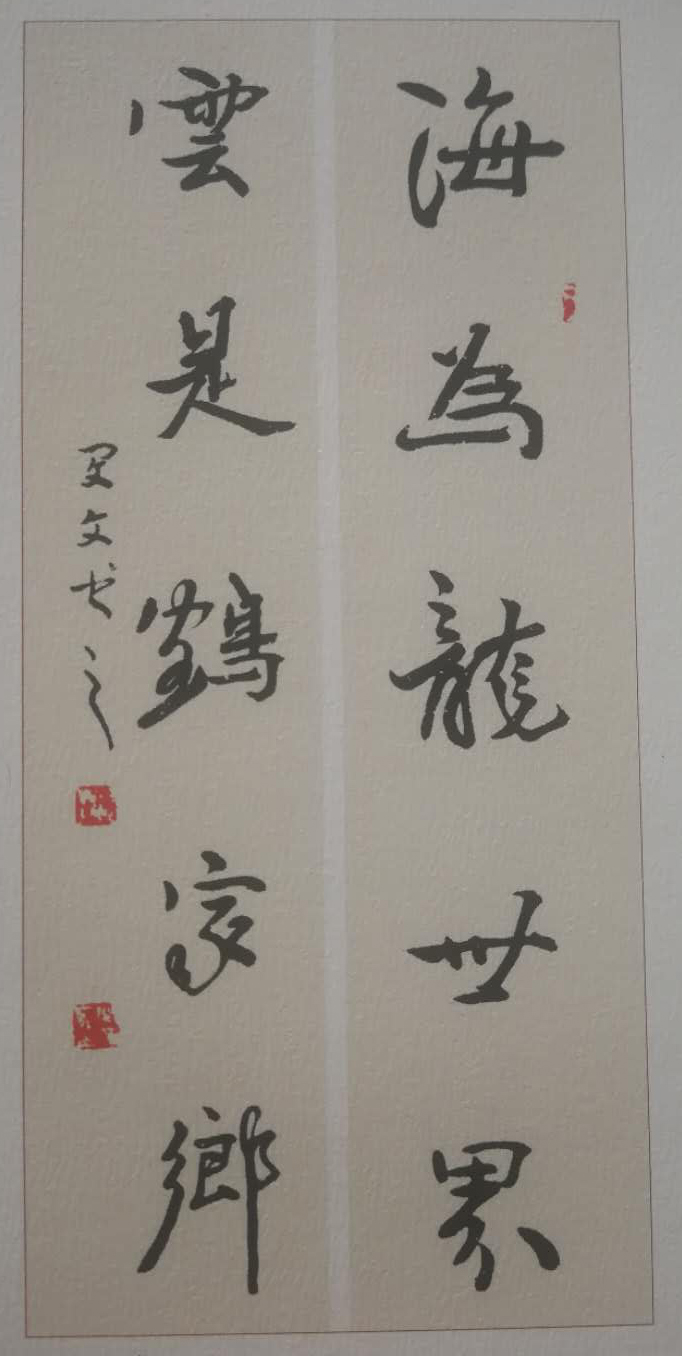 海為龍世界
雲是鶴家鄉
文書之